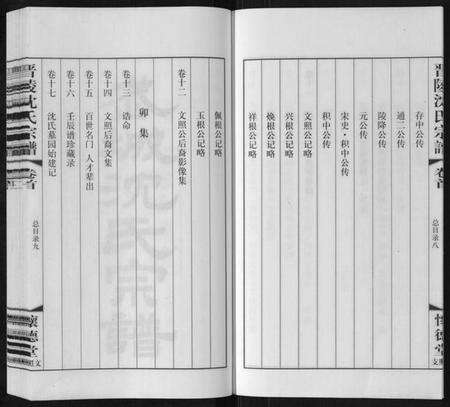 晋陵沈氏宗譜
卷首
总目录八
懷德堂
文熙
存中公传
通二公传
元公传
陵降公传
宋史·积中公传
积中公传
文照公记略
兴根公记略
焕根公记略
祥根公记略
佩根公记略
玉根公记略
卷十二 文照公后裔影像集
卯集
卷十三 诰命
卷十四 文照后裔文集
卷十五 百世名门 人才辈出
卷十六 壬辰谱珍藏录
卷十七 沈氏墓园始建记
晋陵沈氏宗譜
卷首
总目录九
懷德堂